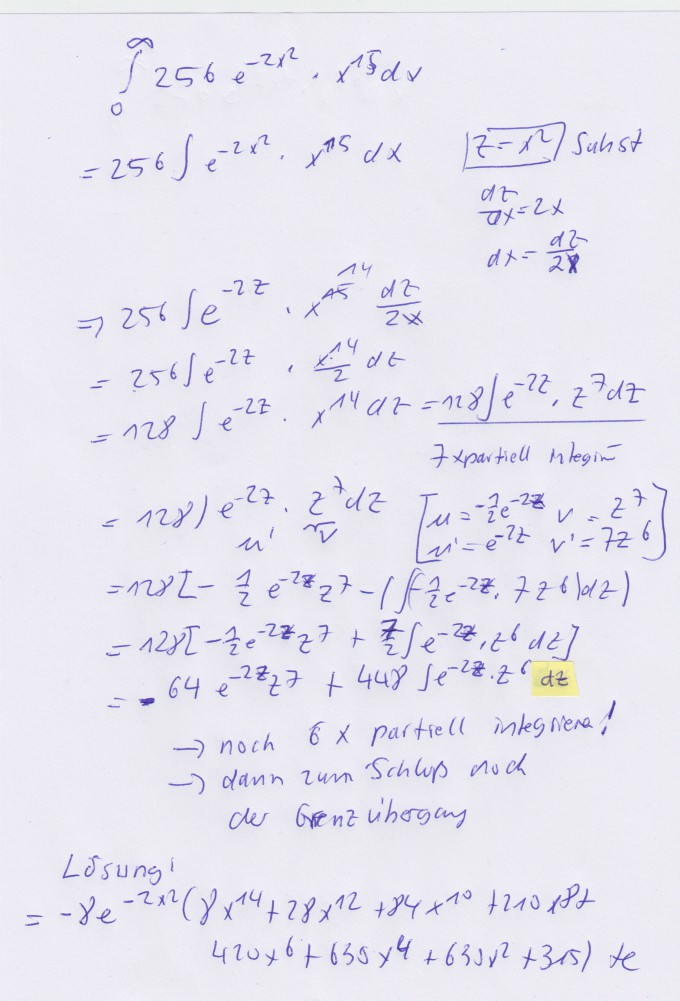 ∫₀^∞ 256 e^{-2x²} · x^{15} dx
= 256 ∫ e^{-2x²} · x^{15} dx   z = x² Subst
dz/dx = 2x
dx = dz/2x
⇒ 256 ∫ e^{-2z} · x^{15} 14 dz/2x
= 256 ∫ e^{-2z} · x^{14}/2 dz
= 128 ∫ e^{-2z} · x^{14} dz = 128 ∫ e^{-2z} · z^7 dz
7 x partiell integrin
= 128 ∫ e^{-2z} · z^7 dz   [u = -1/2 e^{-2z}   v = z^7
u'   v   u' = e^{-2z}   v' = 7z^6]
= 128 [- 1/2 e^{-2z} z^7 - (∫(-1/2 e^{-2z} · 7z^6) dz)
= 128 [-1/2 e^{-2z} z^7 + 7/2 ∫ e^{-2z} · z^6 dz]
= - 64 e^{-2z} z^7 + 448 ∫ e^{-2z} · z^6 dz
→ noch 6 x partiell integrieren!
→ dann zum Schluß noch
der Grenzübergang
Lösung:
= -8e^{-2x²} (8x^{14} + 28x^{12} + 84x^{10} + 210x^8 +
420x^6 + 630x^4 + 630x² + 315) + c